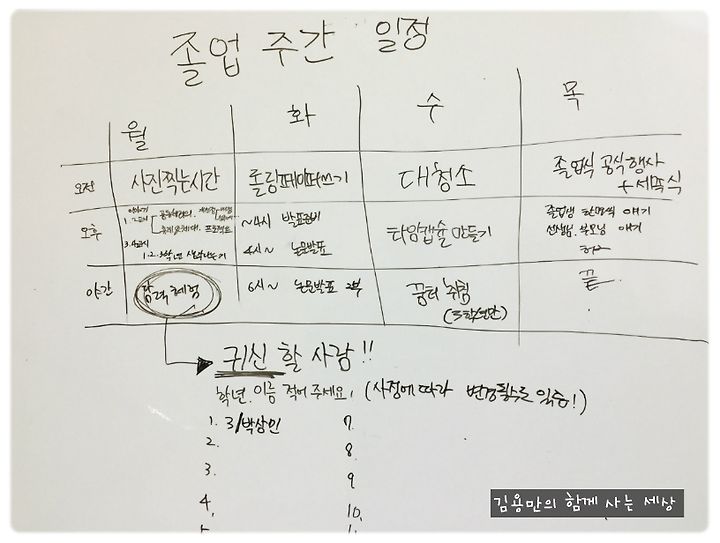 졸업 주간 일정
월 화 수 목
오전 사진찍는시간 롤링페이퍼쓰기 대청소 졸업식 공식행사 + 세족식
오후 ~4시 발표준비 타임캡슐 만들기
4시~ 논문발표
1·2·3학년
선생님. 부모님 얘기
야간 담력체험 6시~ 논문발표 2부 꿈터 취침 (3학년만) 끝
귀신 할 사람!!
학년. 이름 적어 주세요! (사정에 따라 변경될수도 있음!)
1. 3/박상인 7.
2. 8.
3. 9
4. 10.
김용만의 함께 사는 세상